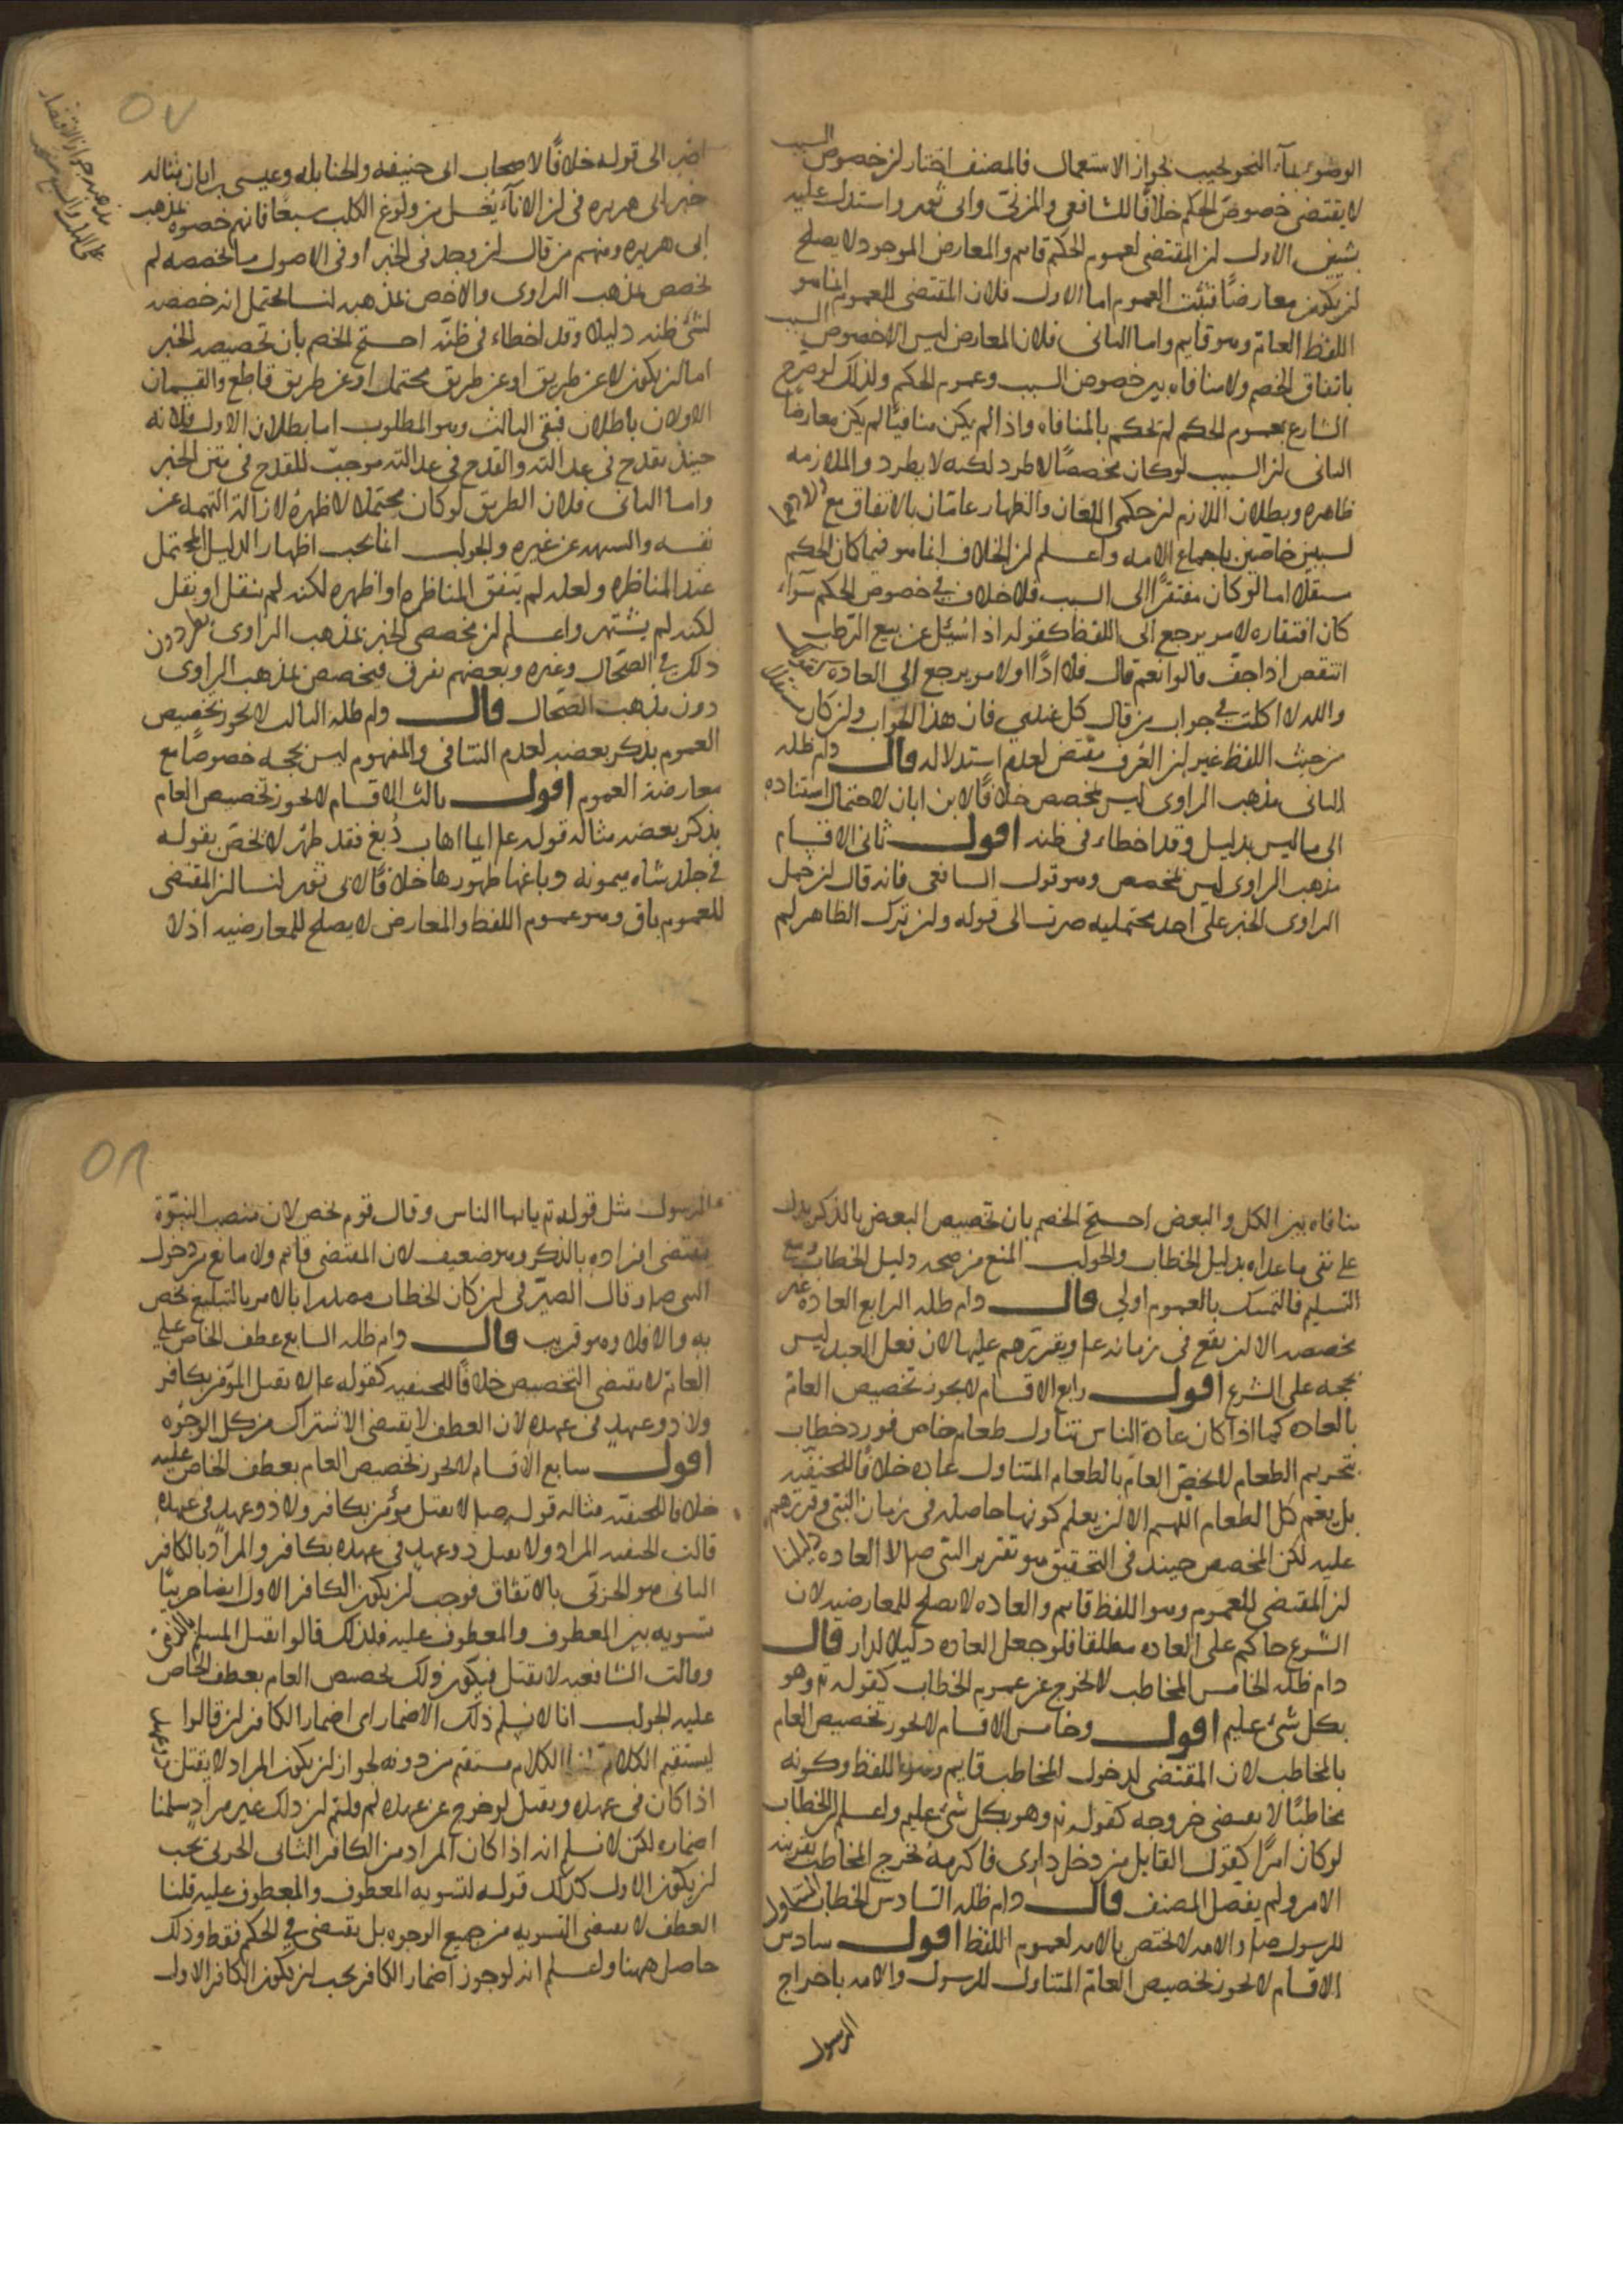 الوضوء بمآء البحر لحيث بجواز الاستعمال فالمصنف اختار لن خصوص السبب
لا يقتضى خصوص الحكم خلافا للشافعي والمزني وابى ثور واستدل عليه
بشيئين الاول لن المقتضى لعموم الحكم قايم والمعارض الموجود لا يصلح
لن يكون معارضًا فيثبت العموم اما الاول فلان المقتضى للعموم انما هو
اللفظ العام وهو قايم واما الثانى فلان المعارض ليس الا خصوص السبب
باتفاق الخصم ولا منافاه بين خصوص السبب وعموم الحكم ولذلك لو صرح
الشارع بعموم الحكم لم تحكم بالمنافاه واذا لم يكن منافيًا لم يكن معارضًا
الثانى لن السبب لو كان مخصصًا لاطرد لكنه لا يطرد والملازمه
ظاهره وبطلان اللازم لن حكمى اللعان والظهار عامّان بالاتفاق مع
لسببين خاصّين باجماع الامه واعلم لن الخلاف انما هو فيما كان الحكم
مستقلا اما لو كان مفتقرًا الى السبب فلا خلاف في خصوص الحكم سَواء
كان افتقاره لامر يرجع الى اللفظ كقوله اذ اسُئِل عن بيع الرطب
انتقص اذا جفّ قالوا نعم قال فلا اذًا او لامر يرجع الى العاده
والله لا اكلت في جواب من قال كل عندي فان هذا الجواب ولن كان
من حيث اللفظ غير لن العُرف مقتض لعدم استدلاله قال دام ظله
الثانى مذهب الراوى ليس بمخصص خلافًا لابن ابان لاحتمال استناده
الى ما ليس بدليل وقد اخطاء فى ظنه اقول ثانى الاقسام
مذهب الراوى ليس بمخصص وهو قول الشافعى فانه قال لن حمل
الراوى الخبر على احد محتمليه صرت الى قوله ولن ترك الظاهر لم
اصر الى قوله خلافًا لاصحاب ابى حنيفه والحنابله وعيسى بن ابان مثاله
خبر ابى هريره فى لن الانآء يُغسل من ولوغ الكلب سبعًا فانهم خصوه بمذهب
ابى هريره ومنهم من قال لن وجد فى الخبر او فى الاصول ما يخصصه لم
يخصص بمذهب الراوى والاخص بمذهبه لنا يحتمل انه خصصه
لشئ ظنه دليلا وقد اخطاء فى ظنّه احتج الخصم بان تخصيصه للخبر
اما لن يكون لا عن طريق او عن طريق محتمل او عن طريق قاطع والقسمان
الاولان باطلان فبقى الثالث وهو المطلوب اما بطلان الاول فلانه
حينئذ يقدح فى عدالته والقدح فى عدالته موجبٌ للقدح فى متن الخبر
واما الثانى فلان الطريق لو كان محتملا لاظهره لازالة التهمه عن
نفسه والشبهه عن غيره والجواب انما يجب اظهار الدليل المحتمل
عند المناظره ولعله لم يتفق المناظره او اظهره لكنه لم ينقل او نقل
لكنه لم يشتهر واعلم لن مخصصى الخبر بمذهب الراوى
ذلك في الصحابى وغيره وبعضهم يفرق فيخصص بمذهب الراوى
دون مذهب الصحابى قال دام ظله الثالث لا يجوز تخصيص
العموم بذكر بعضه لعدم التنافى والمفهوم ليس بحجه خصوصًا مع
معارضة العموم اقول ثالث الاقسام لا يجوز تخصيص العام
بذكر بعضه مثاله قوله عم ايما اهاب دُبغ فقد طهُر لا يخصّ بقوله
في جلد شاه ميمونه دباغها طهورها خلافًا لابى ثور لنا لن المقتضى
للعموم باق وهو عموم اللفظ والمعارض لا يصلح للمعارضيه اذ لا
منافاه بين الكل والبعض احتج الخصم بان تخصيص البعض بالذكر يدل
على نفى ما عداه بدليل الخطاب والجواب المنع من صحه دليل الخطاب ومع
التسليم فالتمسك بالعموم اولي قال دام ظله الرابع العاده غير
مخصصه الا لن يقع فى زمانه عم ويقررهم عليها لان فعل العبد ليس
بحجه على الشرع اقول رابع الاقسام لا يجوز تخصيص العام
بالعاده كما اذا كان عادة الناس تناول طعام خاص فورد خطاب
بتحريم الطعام لا يخصّ العام بالطعام المتناول عاده خلافًا للحنفيّه
بل يعم كل الطعام اللهم الا لن يعلم كونها حاصله فى زمان النبى وقررهم
عليه لكن المخصص حينئذ فى التحقيق هو تقرير النبى صلم لا العاده دليلنا
لن المقتضى للعموم وهو اللفظ قايم والعاده لا يصلح للمعارضيه لان
الشرع حاكم على العاده مطلقا فلو جعل العاده دليلا لدار قال
دام ظله الخامس المخاطب لا يخرج عن عموم الخطاب كقوله تع وهو
بكل شئ عليم اقول وخامس الاقسام لا يجوز تخصيص العام
بالمخاطب لان المقتضى لدخول المخاطب قايم وهو اللفظ وكونه
مخاطبًا لا يقتضى خروجه كقوله تع وهو بكل شئ عليم واعلم لن الخطاب
لو كان امرًا كقول القايل من دخل دارى فاكرمه يخرج المخاطب بقرينه
الامر ولم يفصل المصنف قال دام ظله السادس الخطاب المتناول
للرسول صلم والامه لا يختص بالامه لعموم اللفظ اقول سادس
الاقسام لا يجوز تخصيص العام المتناول للرسول والامه باخراج
الرسول
الرسول مثل قوله تع يايها الناس وقال قوم يخص لان منصب النبوّة
يقتضى افراده بالذكر وهو ضعيف لان المقتضى قايم ولا مانع من دخول
النبى صلم وقال الصيرفى لن كان الخطاب مصدرا بالامر بالتبليغ يخص
به والا فلا وهو قريب قال دام ظله السابع عطف الخاص على
العام لا يقتضى التخصيص خلافًا للحنفيه كقوله عم لا يقتل المؤمن بكافر
ولا ذو عهد فى عهده لان العطف لا يقتضى الاشتراك من كل الوجوه
اقول سابع الاقسام لا يجوز تخصيص العام بعطف الخاص عليه
خلافا للحنفيّه مثاله قوله صلم لا يقتل مؤمن بكافر ولا ذو عهد فى عهده
قالت الحنفيه المراد ولا يقتل ذو عهد فى عهده بكافر والمراد بالكافر
الثانى هو الحربى بالاتفاق فوجب لن يكون الكافر الاول ايضا حربيًا
تسويه بين المعطوف والمعطوف عليه فلذلك قالوا يقتل المسلم بالذمى
وقالت الشافعيه لا يقتل فيكون ذلك تخصيص العام بعطف الخاص
عليه الجواب انا لا نسلم ذلك الاضمار اى اضمار الكافر لن قالوا
ليستقيم الكلام الكلام مستقيم من دونه لجواز لن يكون المراد لا يقتل ذو عهد
اذا كان فى عهده ويقتل لو خرج عن عهده لم قلتم لن ذلك غير مراد سلمنا
اضماره لكن لا نسلم انه اذا كان المراد من الكافر الثانى الحربى يجب
لن يكون الاول كذلك قوله لتسويه المعطوف والمعطوف عليه قلنا
العطف لا يقتضى التسويه من جميع الوجوه بل يقتضى في الحكم فقط وذلك
حاصل ههنا واعلم انه لو جوز اضمار الكافر يجب لن يكون الكافر الاول